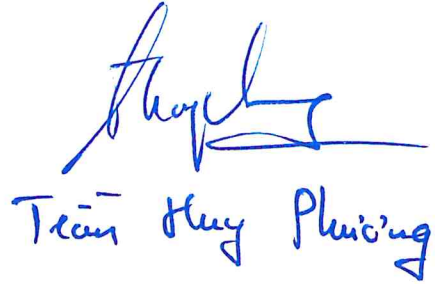 Trần Huy Phương